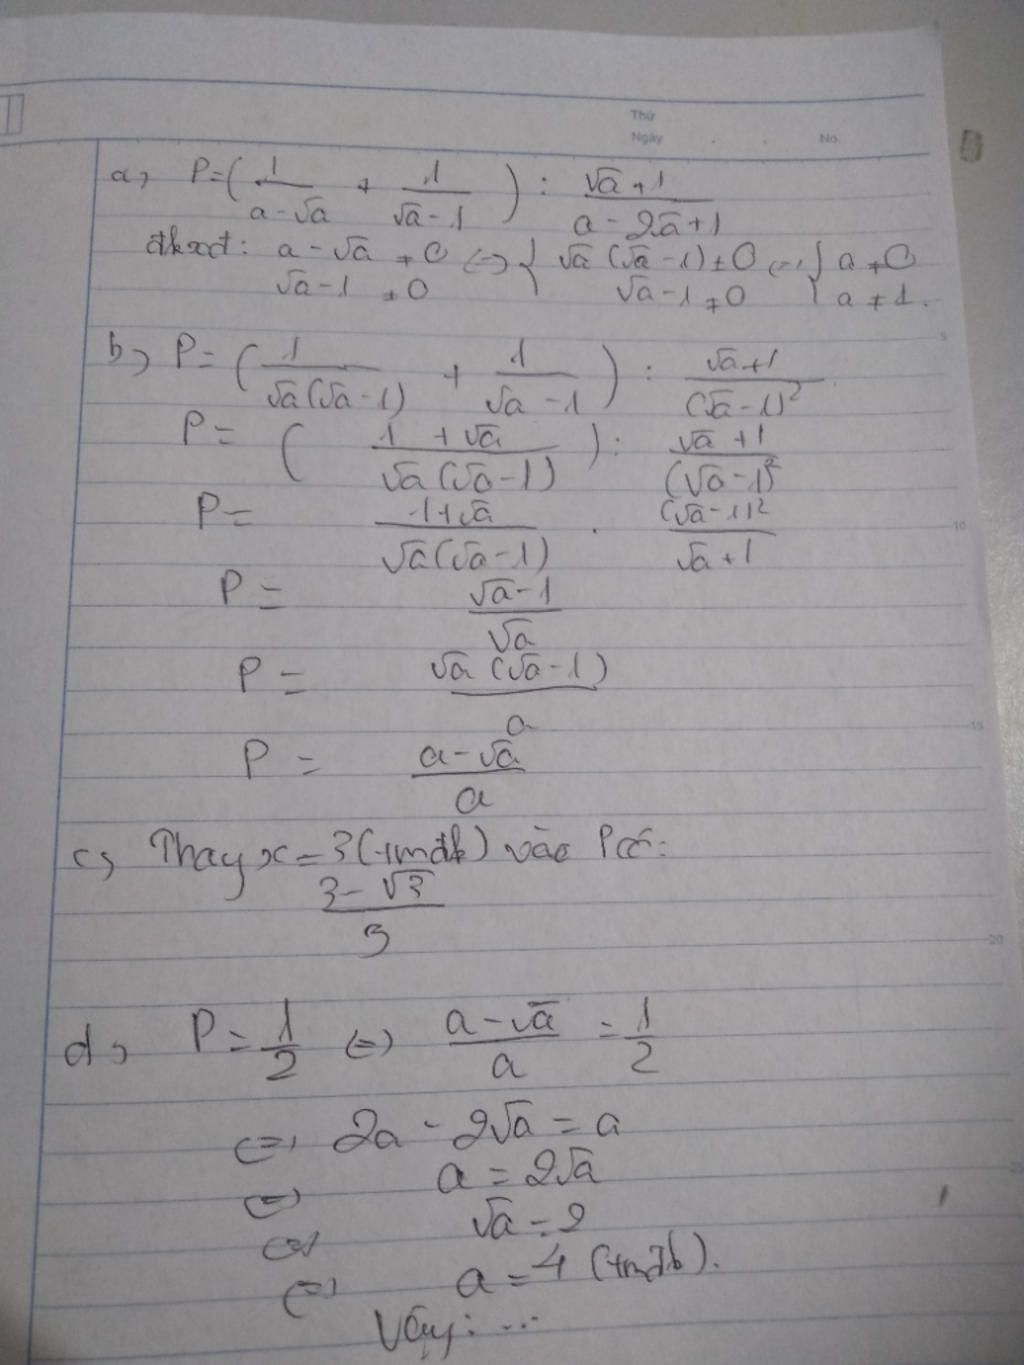 Thứ
Ngày No.
a, P=(1/(a-√a) + 1/(√a-1)) : (√a+1)/(a-2√a+1)
đkxđ: a-√a ≠ 0 <=> { √a(√a-1) ≠ 0 <=> { a ≠ 0
√a-1 ≠ 0 √a-1 ≠ 0 a ≠ 1.
5
b, P= (1/(√a(√a-1)) + 1/(√a-1)) : (√a+1)/(√a-1)²
P= ((1+√a)/(√a(√a-1))) : (√a+1)/(√a-1)²
P= (1+√a)/(√a(√a-1)) . (√a-1)²/(√a+1)
10
P= (√a-1)/√a
P= √a(√a-1)/a
15
P= (a-√a)/a
c, Thay x=3(tmđk) vào P có:
(3-√3)/3
20
d, P=1/2 <=> (a-√a)/a = 1/2
<=> 2a-2√a=a
<=> a=2√a
<=> √a=2
<=> a=4 (tmđk).
Vậy: ...